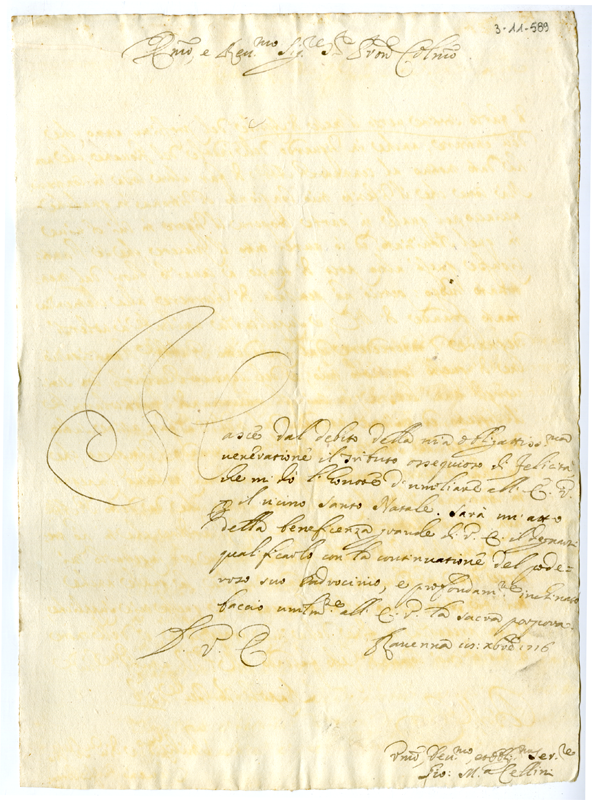 3-11-589
Em.mo, e Rev.mo Sig.re Sig.re Pron Col.mo
Nasce dal debito della mia obligatiss.ma
veneratione il tributo ossequioso di felicità
che mi dò l'honore d'umiliare all' E. V.
p il vicino Santo Natale. Sarà un' atto
della beneficenza grande di V. E. il
qualificarlo con la continuatione del pode-
roso suo Padrocinio, e profondam.te inclinato
baccio umilm.e all' E. V. la Sacra porpora.
D. V. E.
Ravenna xbre 1716
Um.o Dev.mo, et obblig.mo Ser.re
Gio: M.a Cellini